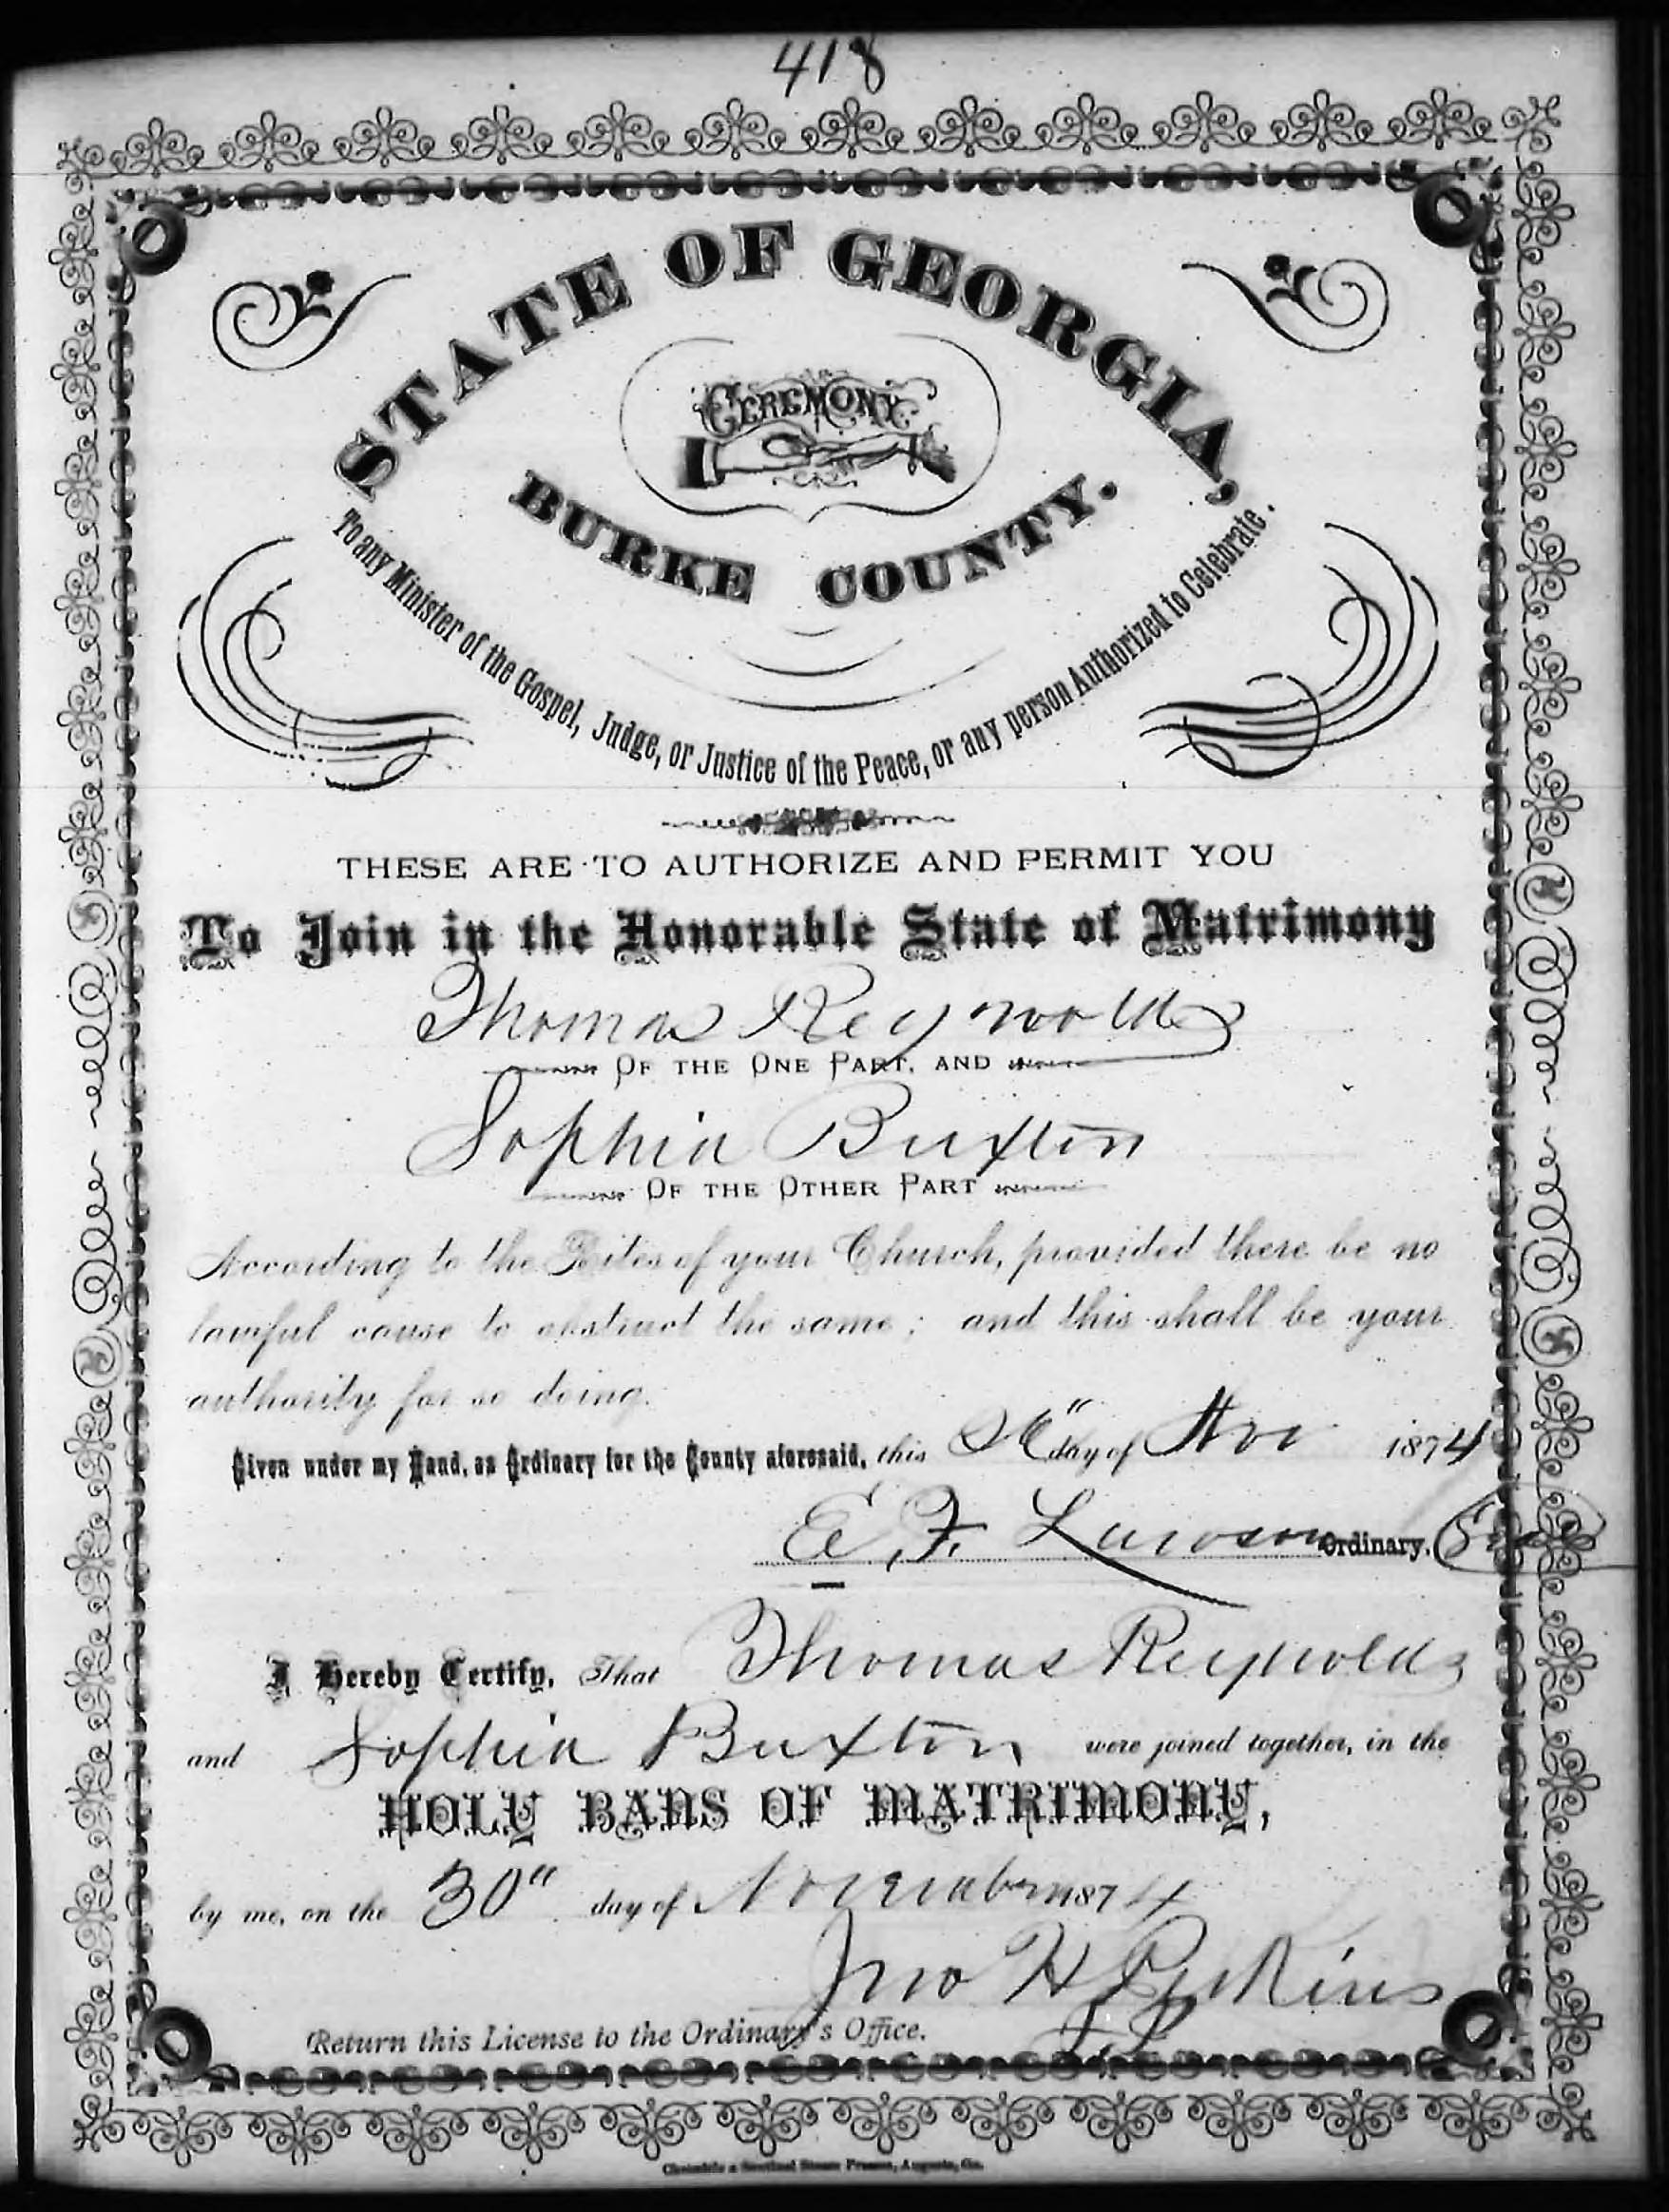 418
STATE OF GEORGIA,
CEREMONY
BURKE COUNTY.
To any Minister of the Gospel, Judge, or Justice of the Peace, or any person Authorized to Celebrate.
THESE ARE TO AUTHORIZE AND PERMIT YOU
To Join in the Honorable State of Matrimony
Thomas Reynolds
OF THE ONE PART, AND
Sophia Buxton
OF THE OTHER PART
According to the Rites of your Church, provided there be no
lawful cause to obstruct the same; and this shall be your
authority for so doing.
Given under my Hand, as Ordinary for the County aforesaid, this day of Nov 1874
E. F. Lawson Ordinary.
I Hereby Certify, That Thomas Reynolds
and Sophia Buxton were joined together, in the
HOLY BANS OF MATRIMONY,
by me, on the 30" day of November 1874
Jno H Perkins
Return this License to the Ordinary's Office.
Chronicle & Sentinel Steam Presses, Augusta, Ga.